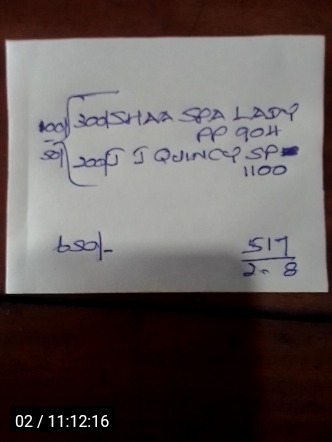 100/ 300/ SHAA SPA LADY
PP 904
50/ 200/ J J QUINCY SP
1100
650/-
517
2. 8
02 / 11:12:16